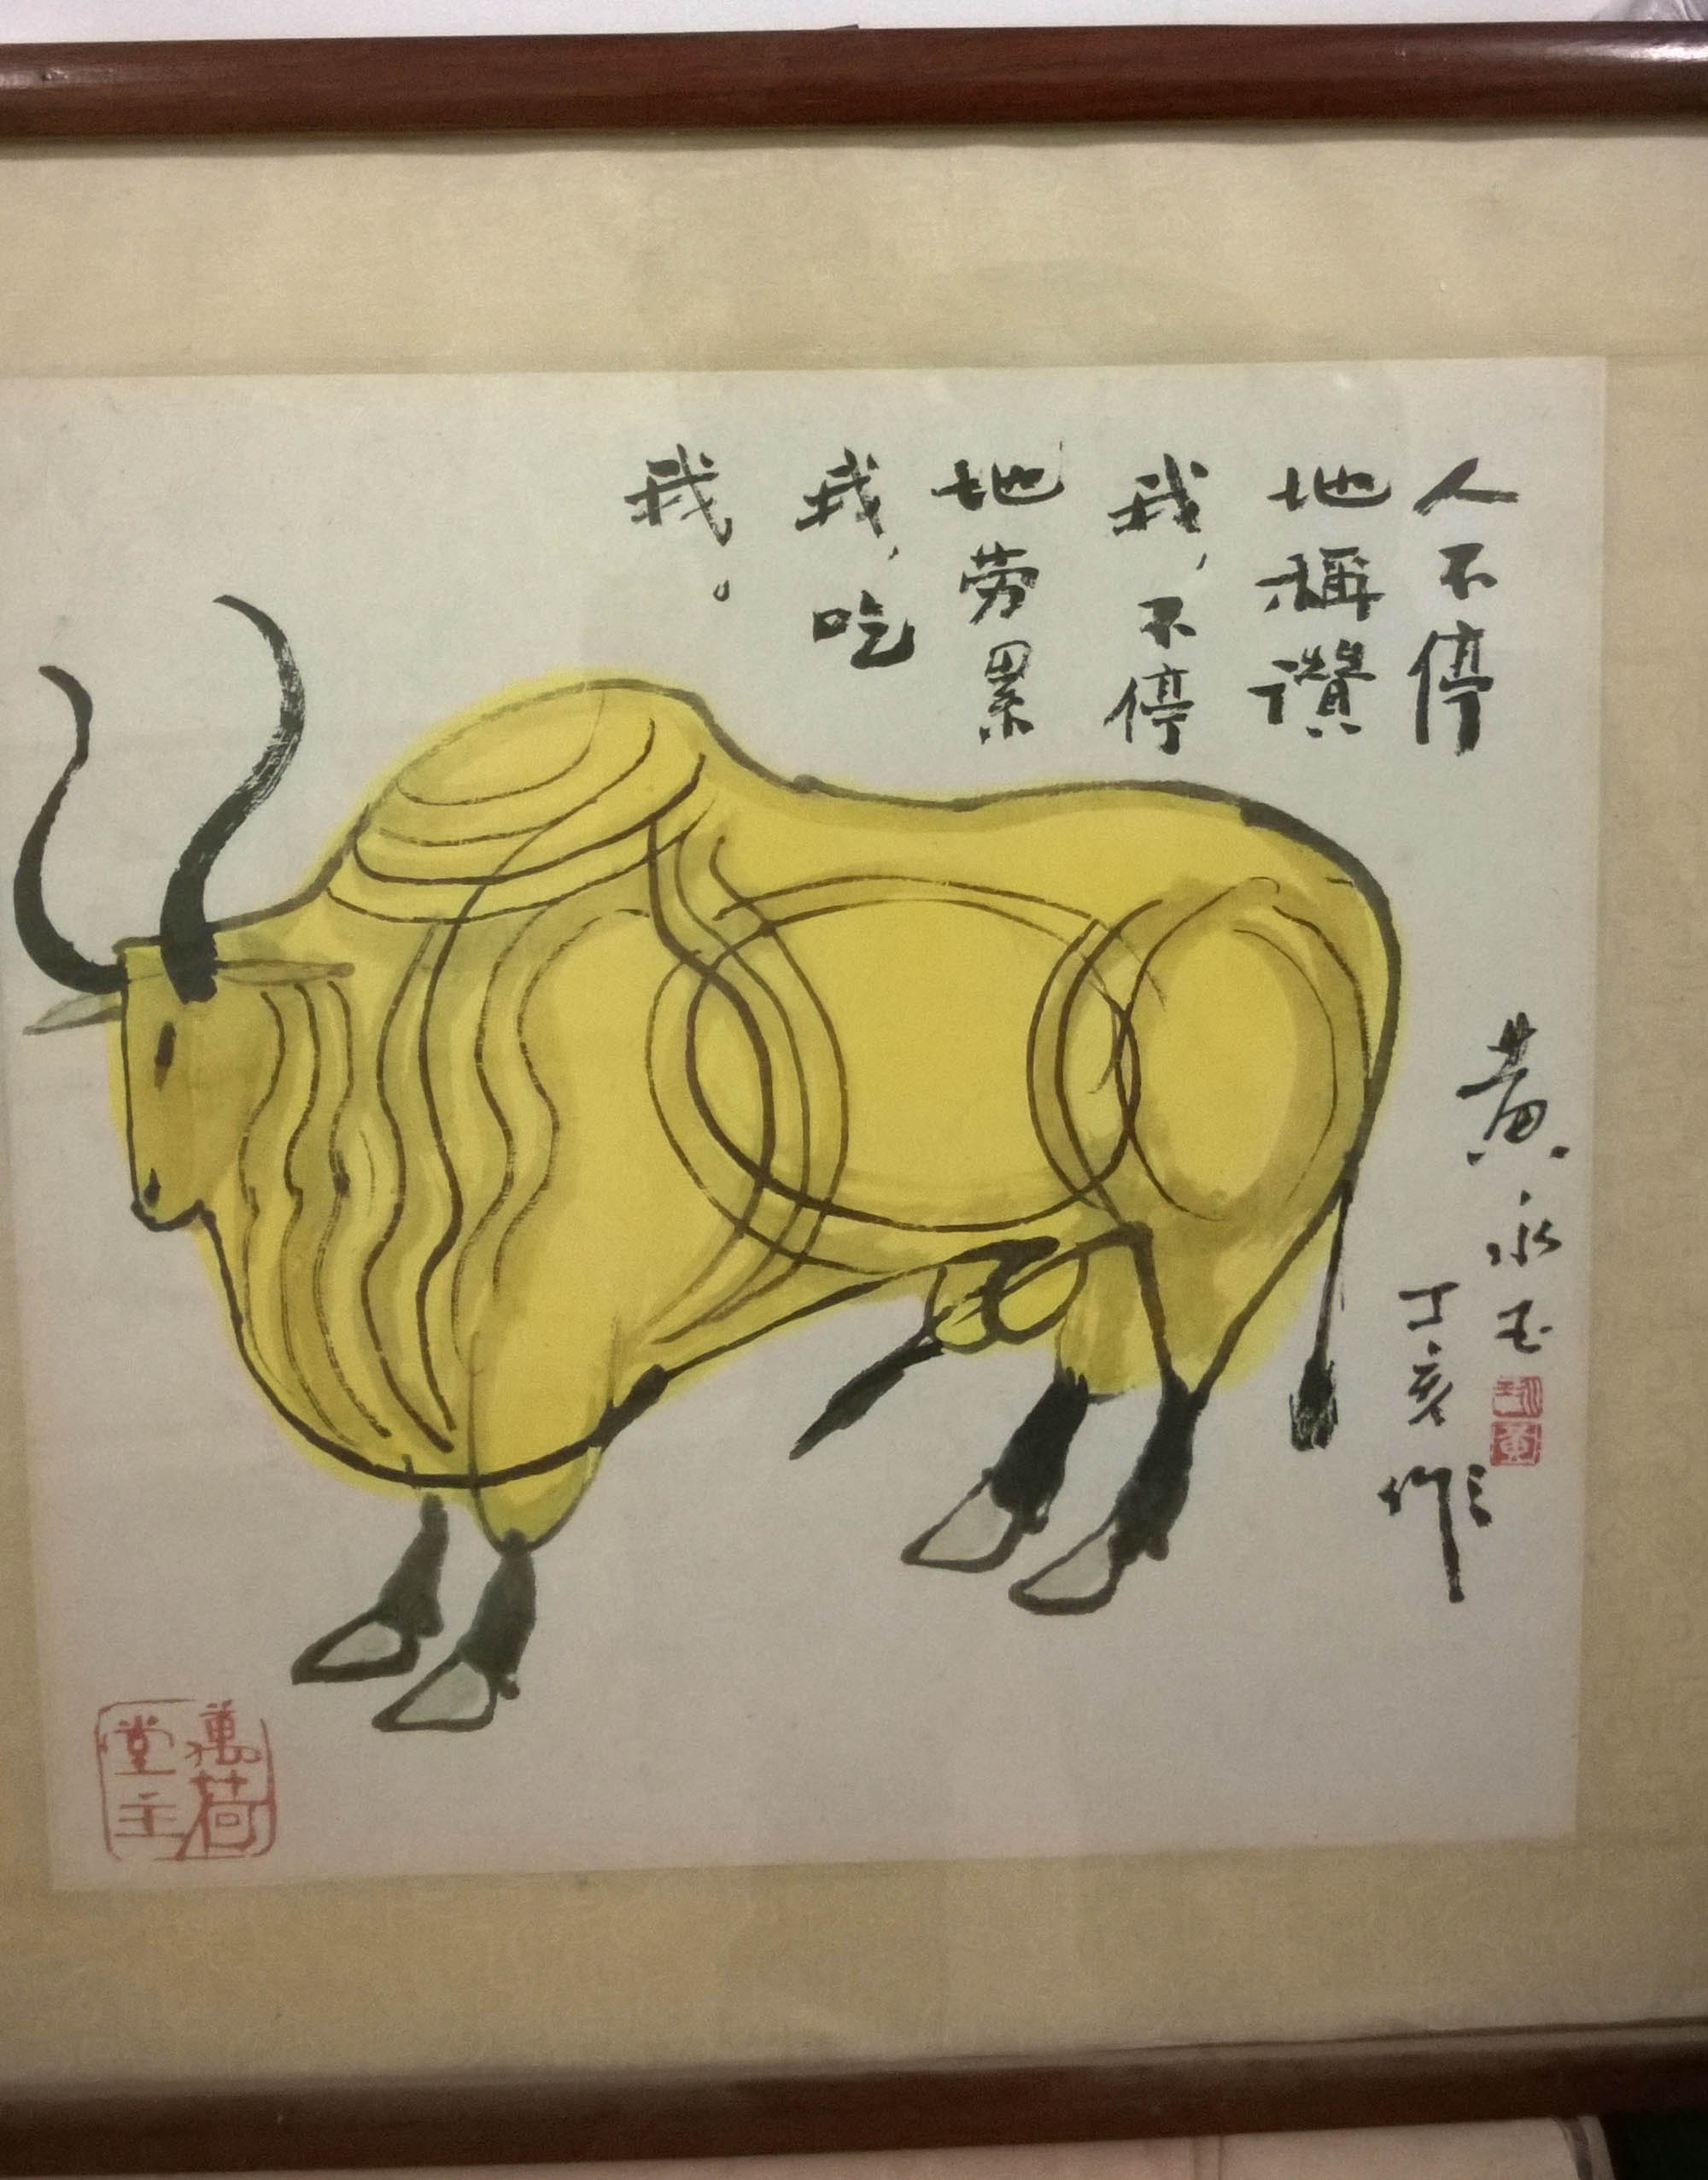 人不停
地稱讚
我，不停
地劳累
我，吃
我。
黄永玉
丁亥
作
永玉
黄
萬荷
堂主